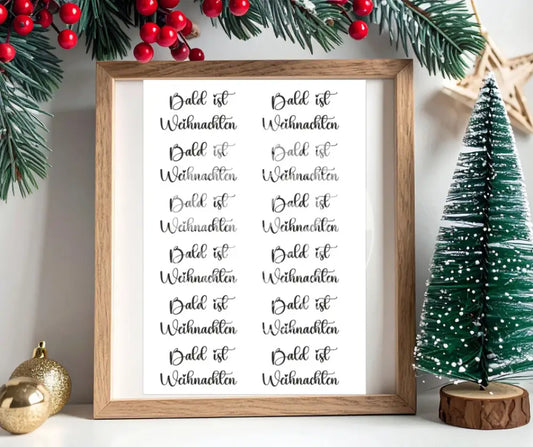 Bald ist Bald ist
Weihnachten Weihnachten
Bald ist Bald ist
Weihnachten Weihnachten
Bald ist Bald ist
Weihnachten Weihnachten
Bald ist Bald ist
Weihnachten Weihnachten
Bald ist Bald ist
Weihnachten Weihnachten
Bald ist Bald ist
Weihnachten Weihnachten